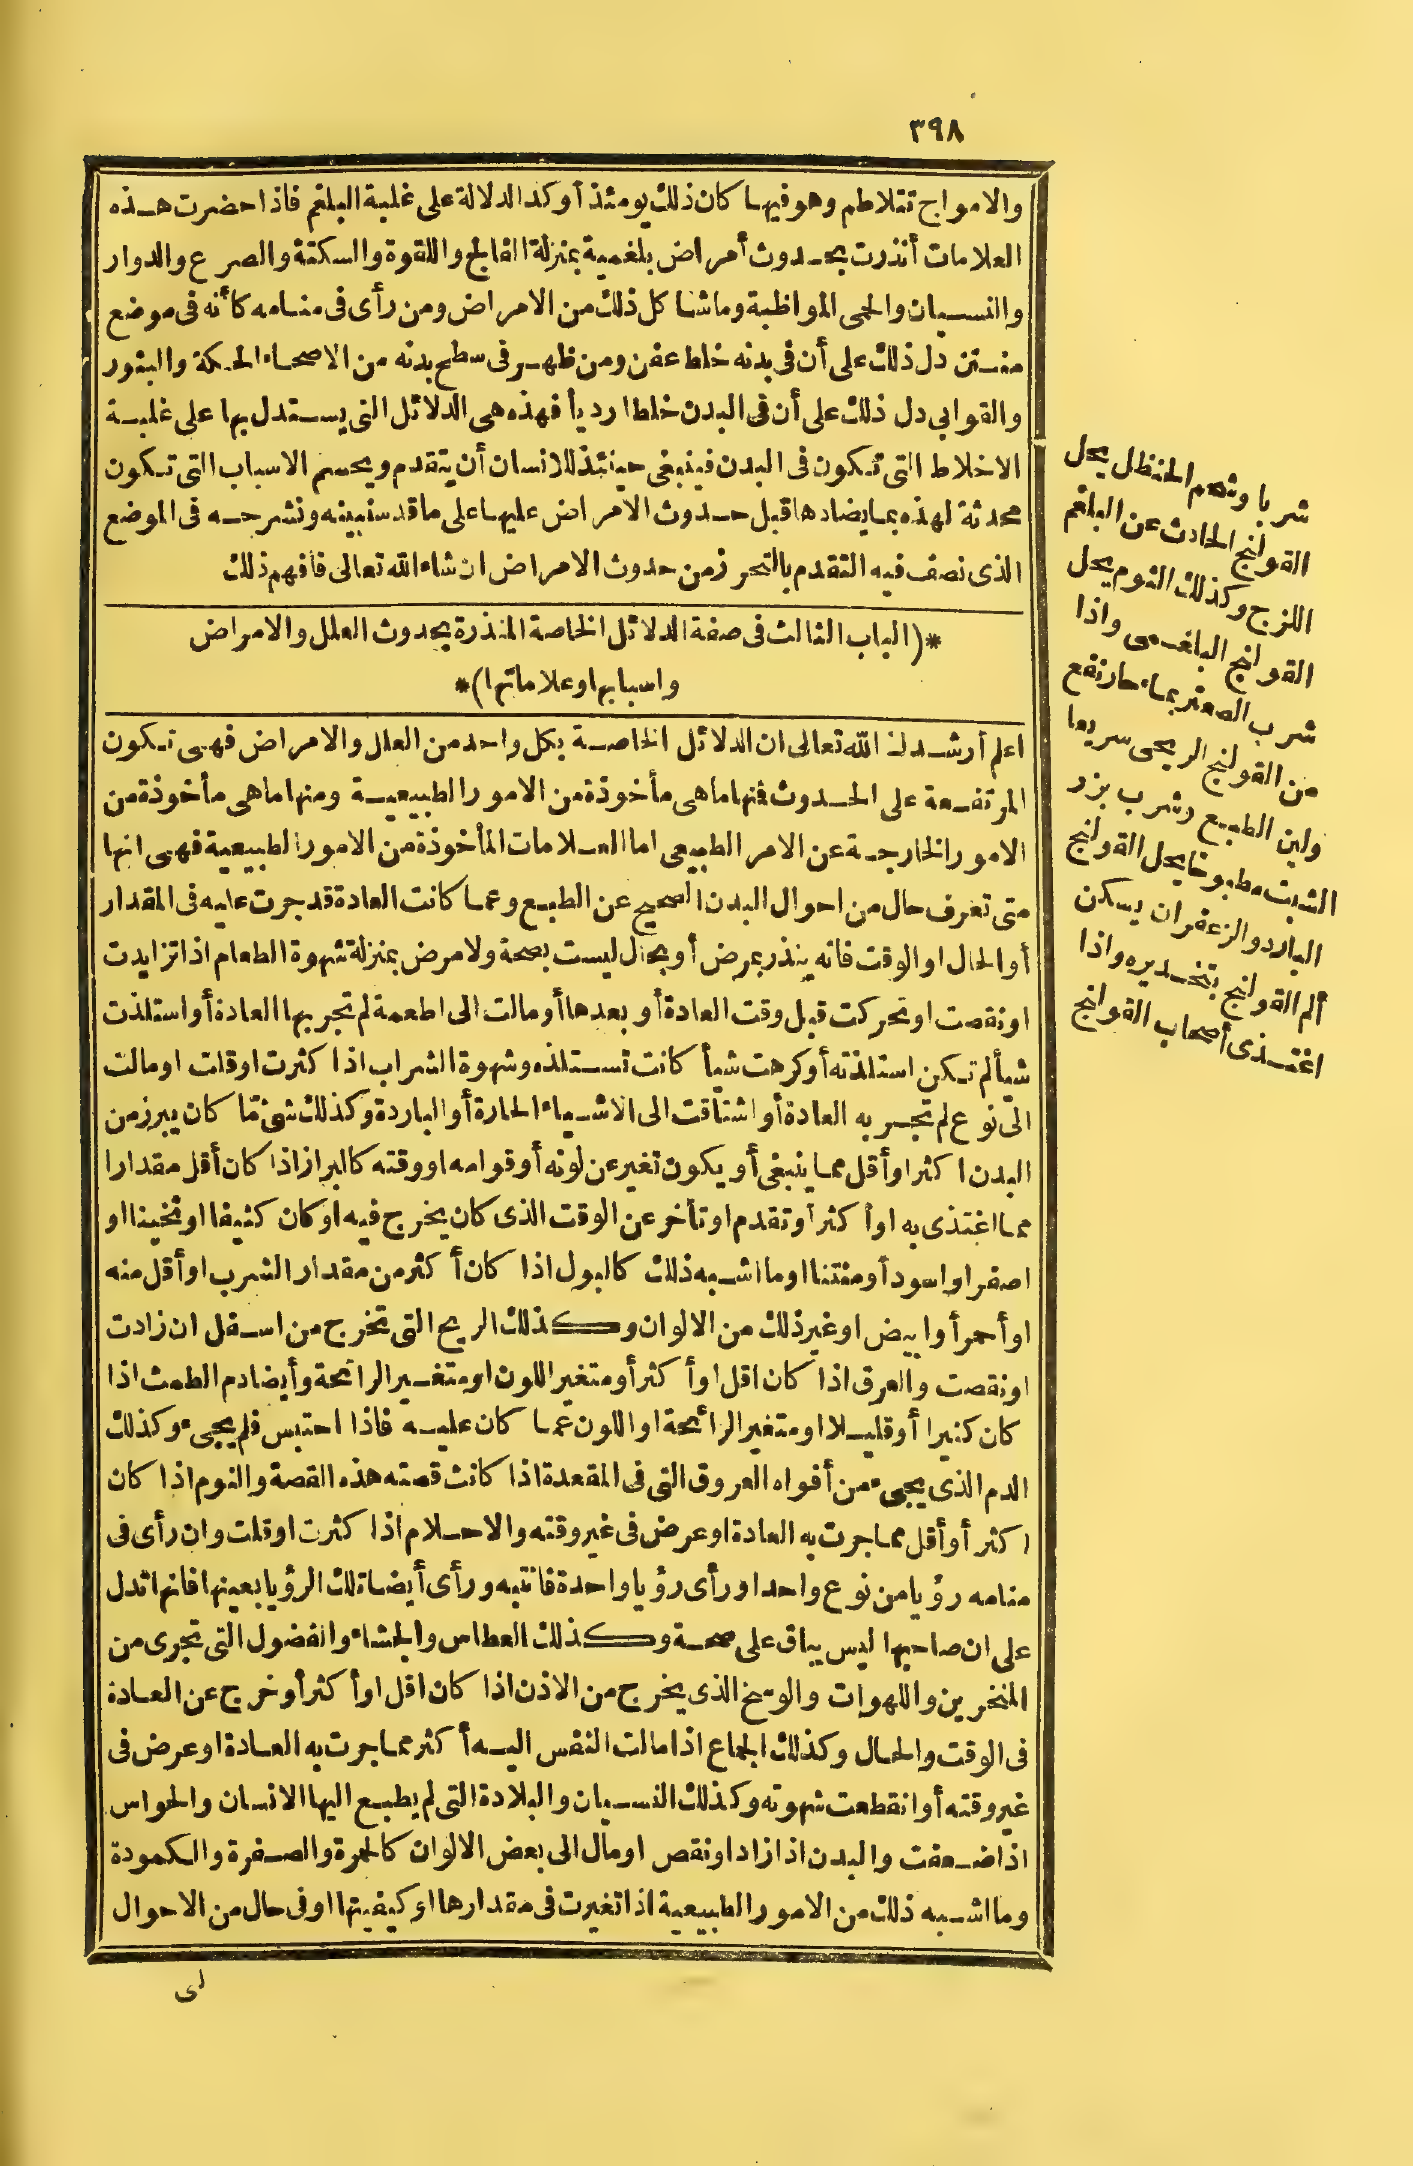 ٣٩٨
والامواج تتلاطم وهو فيها كان ذلك يومئذ أوكد الدلالة على غلبة البلغم فاذا حضرت هذه
العلامات أنذرت بحدوث أمراض بلغمية بمنزلة الفالج واللقوة والسكتة والصرع والدوار
والنسيان والحمى المواظبة وماشا كل ذلك من الامراض ومن رأى فى منامه كأنه فى موضع
منتن دل ذلك على أن فى بدنه خلط عفن ومن ظهر فى سطح بدنه من الاصحاء الحكة والبثور
والقوابى دل ذلك على أن فى البدن خلطا رديأ فهذه هى الدلائل التى يستدل بها على غلبة
الاخلاط التى تكون فى البدن فينبغى حينئذ للانسان أن يتقدم ويحسم الاسباب التى تكون
محدثة لهذه بما يضادها قبل حدوث الامراض عليها على ما قد سنبينه ونشرحه فى الموضع
الذى نصف فيه التقدم بالتحرز من حدوث الامراض ان شاء الله تعالى فافهم ذلك
*(الباب الثالث فى صفة الدلائل الخاصة المنذرة بحدوث العلل والامراض
واسبابها وعلاماتها)*
اعلم أرشدك الله تعالى ان الدلائل الخاصة بكل واحد من العلل والامراض فهى تكون
المرتفعة على الحدوث فمنها ما هى مأخوذة من الامور الطبيعية ومنها ما هى مأخوذة من
الامور الخارجة عن الامر الطبيعى اما العلامات المأخوذة من الامور الطبيعية فهى انها
متى تعرف حال من احوال البدن الصحيح عن الطبع وعما كانت العادة قد جرت عليه فى المقدار
أو الحال او الوقت فانه ينذر بمرض أو بحال ليست بصحة ولا مرض بمنزلة شهوة الطعام اذا تزايدت
او نقصت او تحركت قبل وقت العادة أو بعدها أو مالت الى اطعمة لم تجر بها العادة أو استلذت
شيأ لم تكن استلذته أو كرهت شيأ كانت تستلذه وشهوة الشراب اذا كثرت او قلت او مالت
الى نوع لم تجر به العادة أو اشتاقت الى الاشياء الحارة أو الباردة وكذلك شئ مّا كان يبرز من
البدن اكثر او أقل مما ينبغى أو يكون تغير عن لونه أو قوامه او وقته كالبراز اذا كان أقل مقدارا
مما اغتذى به او أكثر أو تقدم او تأخر عن الوقت الذى كان يخرج فيه او كان كثيفا او ثخينا او
اصفر او اسود أو منتنا او ما اشبه ذلك كالبول اذا كان أكثر من مقدار الشرب او أقل منه
او أحمر أو ابيض او غير ذلك من الالوان وكذلك الريح التى تخرج من اسفل ان زادت
او نقصت والعرق اذا كان اقل او أكثر أو متغير اللون او متغير الرائحة وأيضا دم الطمث اذا
كان كثيرا أو قليلا او متغير الرائحة او اللون عما كان عليه فاذا احتبس فلم يجىء وكذلك
الدم الذى يجىء من أفواه العروق التى فى المقعدة اذا كانت قصته هذه القصة والنوم اذا كان
اكثر أو أقل مما جرت به العادة او عرض فى غير وقته والاحلام اذا كثرت او قلت وان رأى فى
منامه رؤيا من نوع واحد او رأى رؤيا واحدة فانتبه ورأى أيضا تلك الرؤيا بعينها فانها تدل
على ان صاحبها ليس بباق على صحة وكذلك العطاس والجشاء والفضول التى تجرى من
المنخرين واللهوات والوسخ الذى يخرج من الاذن اذا كان اقل او أكثر أو خرج عن العادة
فى الوقت والحال وكذلك الجماع اذا مالت النفس اليه أكثر مما جرت به العادة او عرض فى
غير وقته أو انقطعت شهوته وكذلك النسيان والبلادة التى لم يطبع اليها الانسان والحواس
اذا ضعفت والبدن اذا زاد او نقص او مال الى بعض الالوان كالحمرة والصفرة والكمودة
وما اشبه ذلك من الامور الطبيعية اذا تغيرت فى مقدارها او كيفيتها او فى حال من الاحوال
شربا وشحم الحنظل يحل
القولنج الحادث عن البلغم
اللزج وكذلك الثوم يحل
القولنج البلغمى واذا
شرب الصعتر بماء حار نفع
من القولنج الريحى سريعا
ولين الطبع وشرب بزر
الشبت مطبوخا يحل القولنج
البارد والزعفران يسكن
ألم القولنج بتخديره واذا
اغتذى أصحاب القولنج